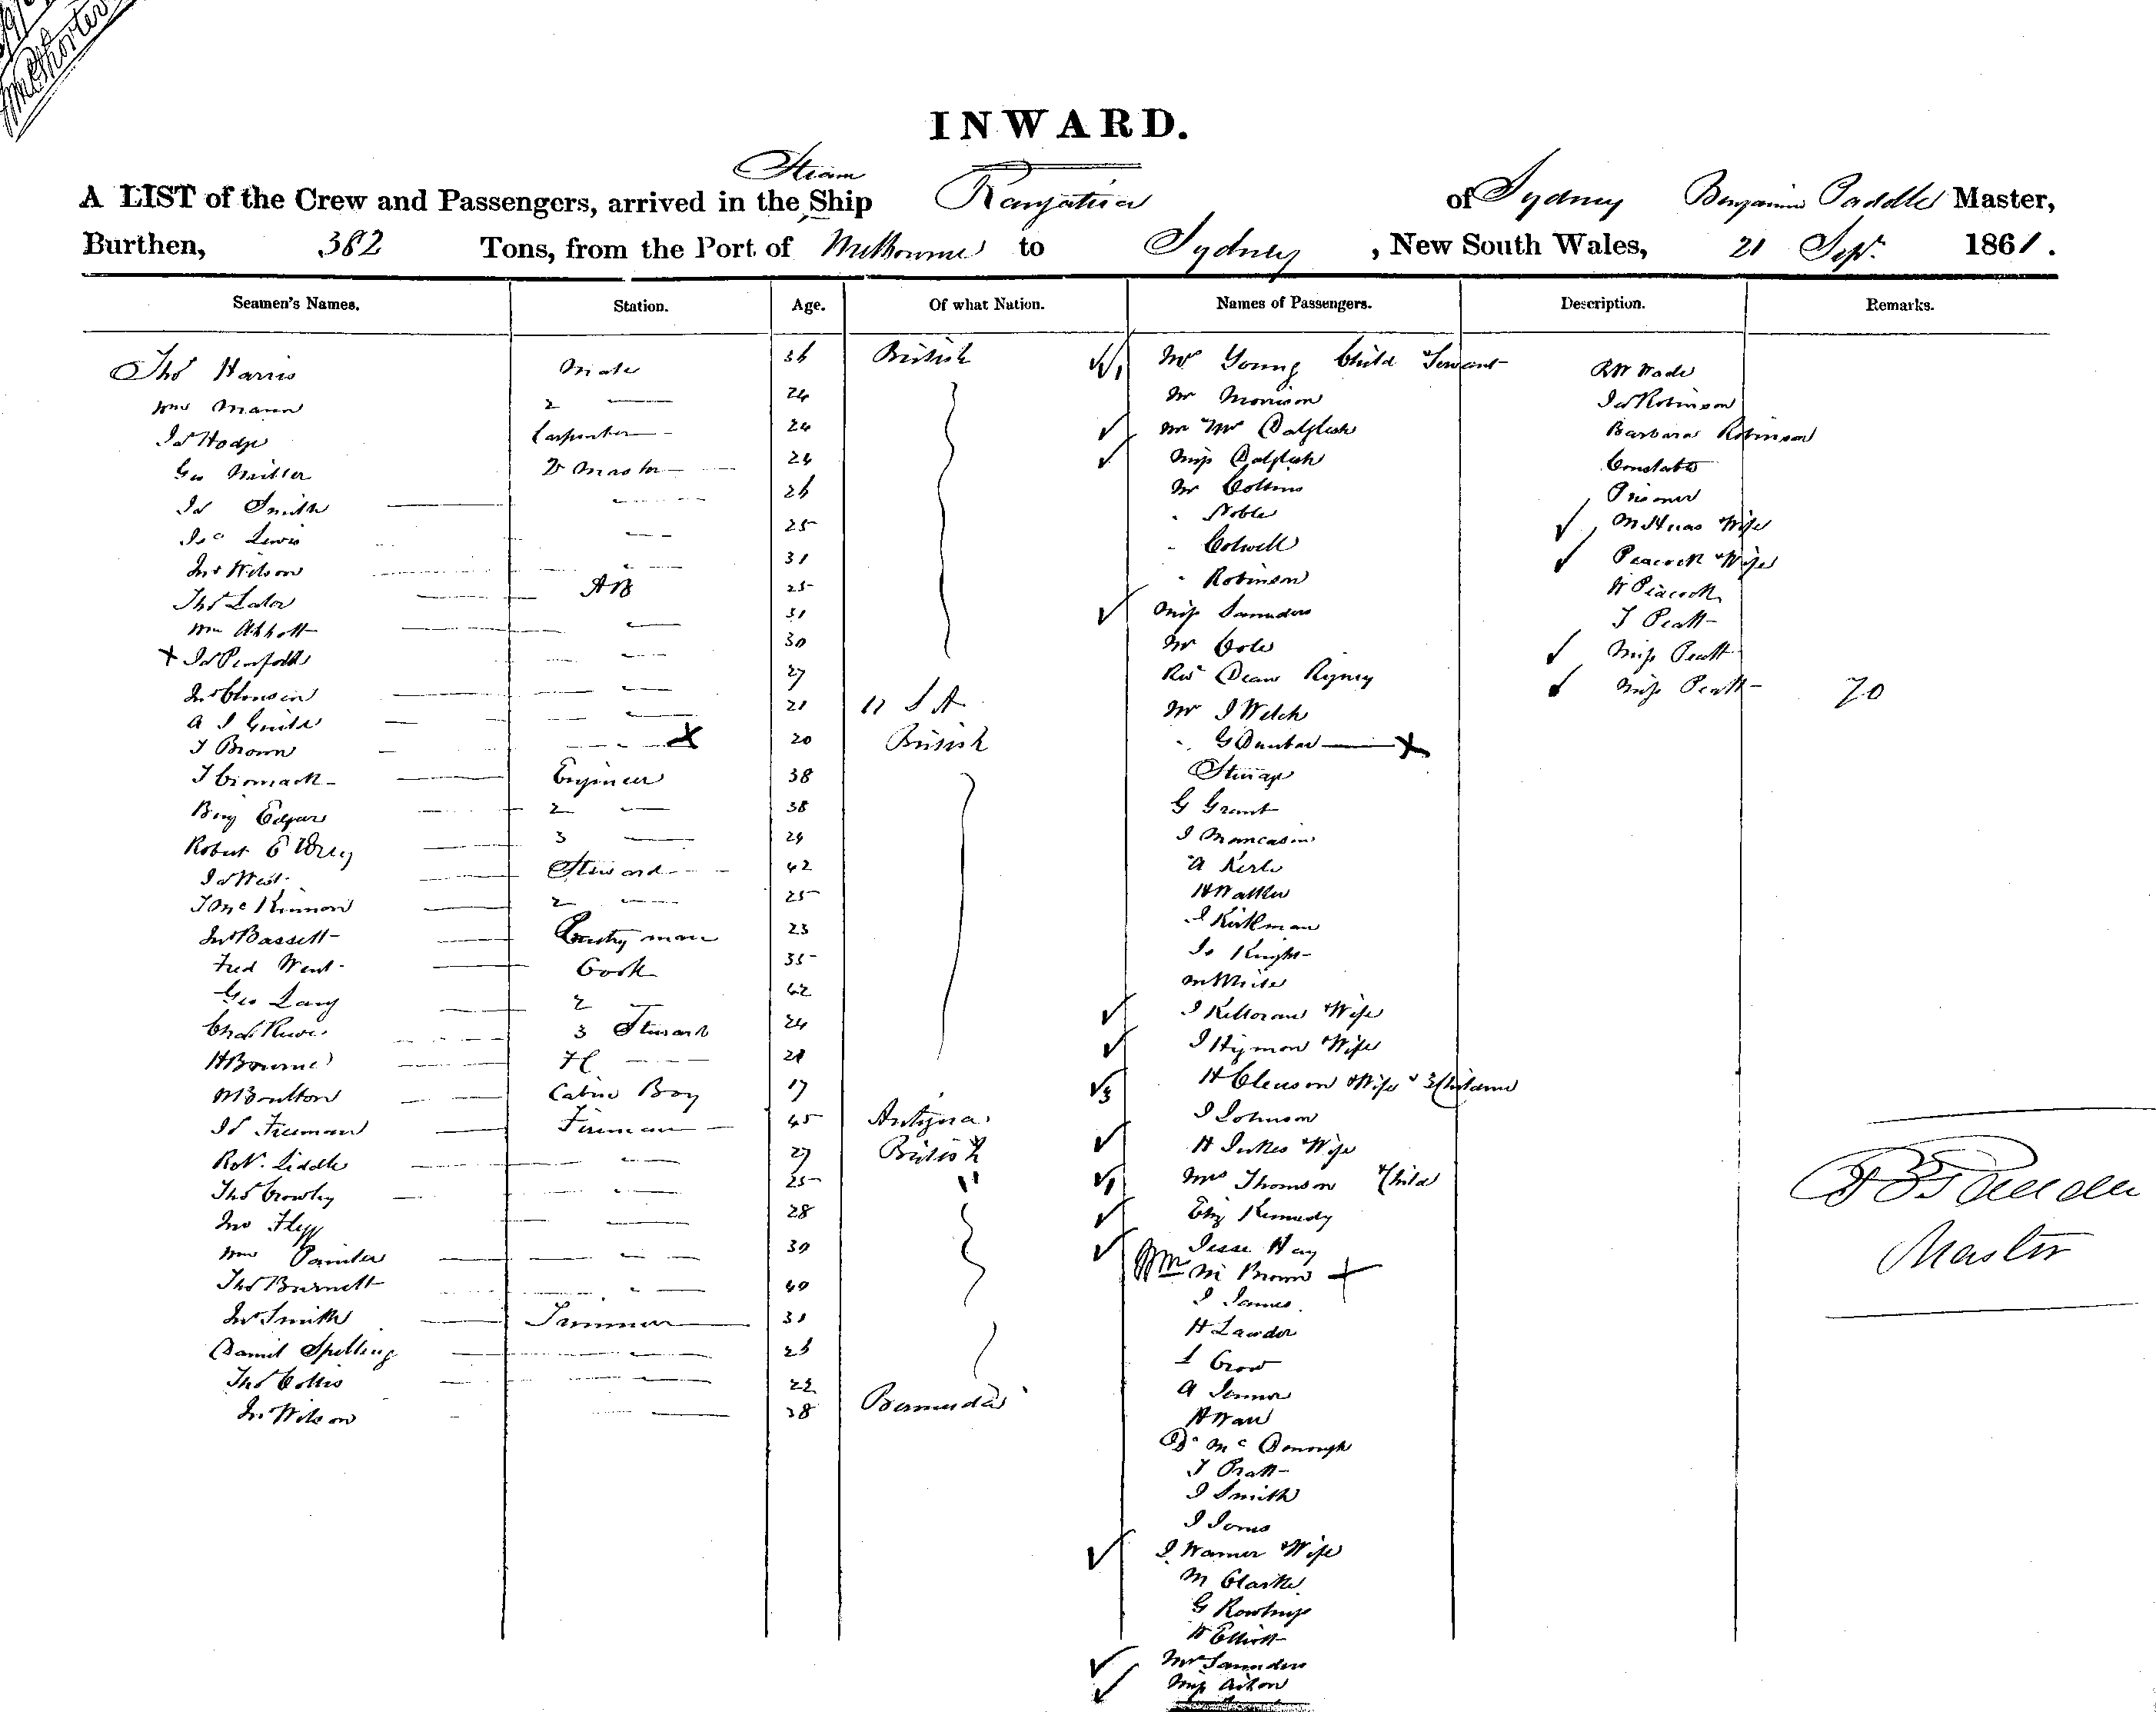 INWARD.
Steam
A LIST of the Crew and Passengers, arrived in the Ship Rangatira of Sydney Benjamin Paddle Master,
Burthen, 382 Tons, from the Port of Melbourne to Sydney, New South Wales, 21 Sept. 1861.
Seamen's Names. Station. Age. Of what Nation. Names of Passengers. Description. Remarks.
Thos Harris Mate 36 British Mrs Young Child Servant RW Wade
Wm Mann 2 24 Mr Morrison Jas Robinson
Jas Hodge Carpenter 24 Mr & Mrs Dalglish Barbara Robinson
Geo Miller Qr Master 24 Miss Dalglish Constable
Jas Smith 26 Mr Collins Prisoner
Lewis 25 Noble Wife
Jno Wilson 31 Colwell Peacock & Wife
Thos Lalor AB 25 Robinson W Peacock
Wm Abbott 31 Miss Saunders T Pratt
X Jas Penfold 30 Mr Cole Miss Pratt
27 Revd Dean Miss Pratt 70
A J Guild 21 U S A Mr J Welch
T Brown X 20 British G Dunbar X
Engineer 38 Steerage
Benj Edgar 2 38 G Grant
Robert 3 24 J
Jas West Steward 42 A
J McKinnon 2 25 H Walker
Jno Bassett Pantry man 23 J Kirkman
Fred Went Cook 35 Jas Knight
Geo Lang 2 42 M White
Chas 3 Steward 24 J Killoran & Wife
H Bourne FC 21 J Hymon & Wife
M Boulton Cabin Boy 17 3 H Clenson & Wife & 3 Children
Jas Freeman Fireman 45 Antigua J Johnson
Robt. Liddle 27 British H Jukes & Wife
Thos Crowley 25 " 1 Mrs Thomson & Child
Jno 28 Eliz Kennedy
Wm Painter 30 Jesse Hay
Thos Burnett 40 Wm M Brown X
Jno Smith Trimmer 31 J James
Daniel Spelling 26 H Lawder
Thos Collis 22 Crow
Jno Wilson 28 Bermuda A
H Wall
McDonough
T Pratt
J Smith
J Jones
J Warner & Wife
M Clarke
G
H Elliott
Mrs Saunders
Miss
Master